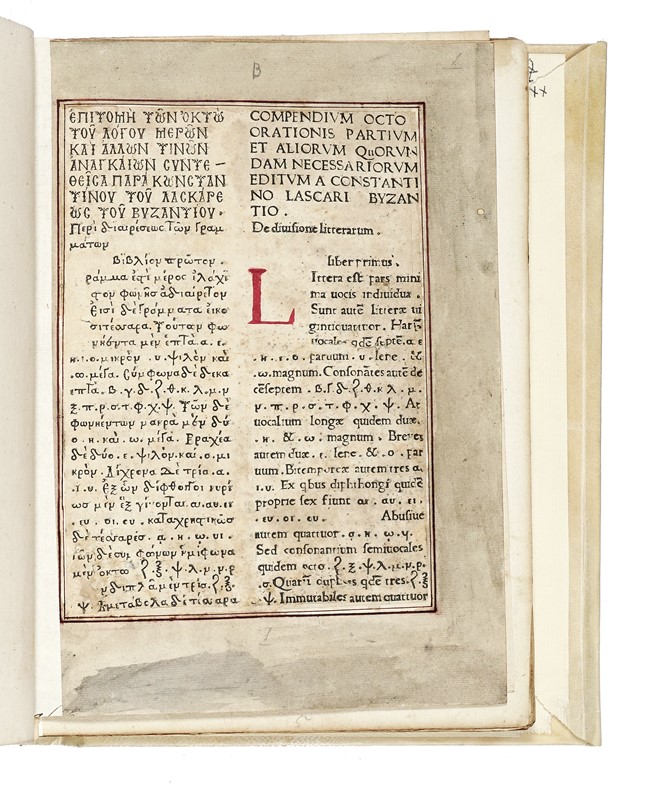 B
ΕΠΙΤΟΜΗ ΤΩΝ ΟΚΤΩ
ΤΟΥ ΛΟΓΟΥ ΜΕΡΩΝ
ΚΑΙ ΑΛΛΩΝ ΤΙΝΩΝ
ΑΝΑΓΚΑΙΩΝ CΥΝΤΕ –
ΘΕΙCΑ ΠΑΡΑ ΚΩΝCΤΑΝ
ΤΙΝΟΥ ΤΟΥ ΛΑCΚΑΡΕ
ΩC ΤΟΥ ΒΥΖΑΝΤΙΟΥ.
Περὶ διαιρέσεως τῶν γραμ
μάτων
Βιβλίον πρῶτον.
ράμμα ἐστὶ μέρος ἐλάχι
στον φωνῆς ἀδιαίρετον
Εἰσὶ δὲ γράμματα εἴκο
σι τέσσαρα. Τούτων φω
νήεντα μὲν ἑπτὰ. α. ε.
η. ι. ο. μικρὸν. υ. ψιλὸν καὶ
.ω. μέγα. Σύμφωνα δὲ δεκα
επτὰ. β. γ. δ. ζ. θ. κ. λ. μ. ν
ξ. π. ρ. σ. τ. φ. χ. ψ. Τῶν δὲ
φωνηέντων μακρὰ μὲν δύ
ο. η. καὶ. ω. μέγα. Βραχέα
δὲ δύο. ε. ψιλὸν. καὶ. ο. μι
κρὸν. Δίχρονα δὲ τρία. α.
. ι. υ. Ἐξ ὧν δίφθογγοι κυρί
ως μὲν ἓξ γίνονται. αι. αυ. ει
. ευ. οι. ου. καταχρηστικῶς
δὲ τέσσαρες. ᾳ. ῃ. ῳ. υι.
τῶν δὲ συμφώνων ἡμίφωνα
μὲν ὀκτὼ ζ. ξ. ψ. λ. μ. ν. ρ
διπλᾶ μὲν τρία. ζ. ξ.
ψ. Ἀμετάβολα δὲ τέσσαρα
COMPENDIVM OCTO
ORATIONIS PARTIVM
ET ALIORVM QuORVN
DAM NECESSARIORVM
EDITVM A CONSTANTI
NO LASCARI BYZAN
TIO .
De diuisione litterarum.
liber primus.
L
Ittera est pars mini
ma uocis indiuidua .
Sunt autē litteræ ui
gintiquattuor. Harῡ
uocales qdē septē. α ε
. η . ι . ο . paruum . υ . lene . &
.ω. magnum. Consonātes autē de
cēseptem . β. γ. δ. ζ. θ. κ. λ. μ.
ν. π. ρ. σ. τ. φ. χ. ψ. At
uocalium longæ quidem duæ.
. η. &. ω. magnum . Breues
autem duæ . ε. lene . &. ο . par
uum. Bitemporeæ autem tres α.
ι. υ. Ex qbus diphthongi quidē
proprie sex fiunt αι . αυ. ει.
. ευ. οι. ου. Abusiue
autem quattuor . ᾳ. ῃ. ῳ. υι.
Sed consonantium semiuocales
quidem octo. ζ. ξ. ψ. λ. μ. ν. ρ.
σ. Quarῡ duplices qdē tres. ζ. ξ
. ψ. Immutabiles autem quattuor